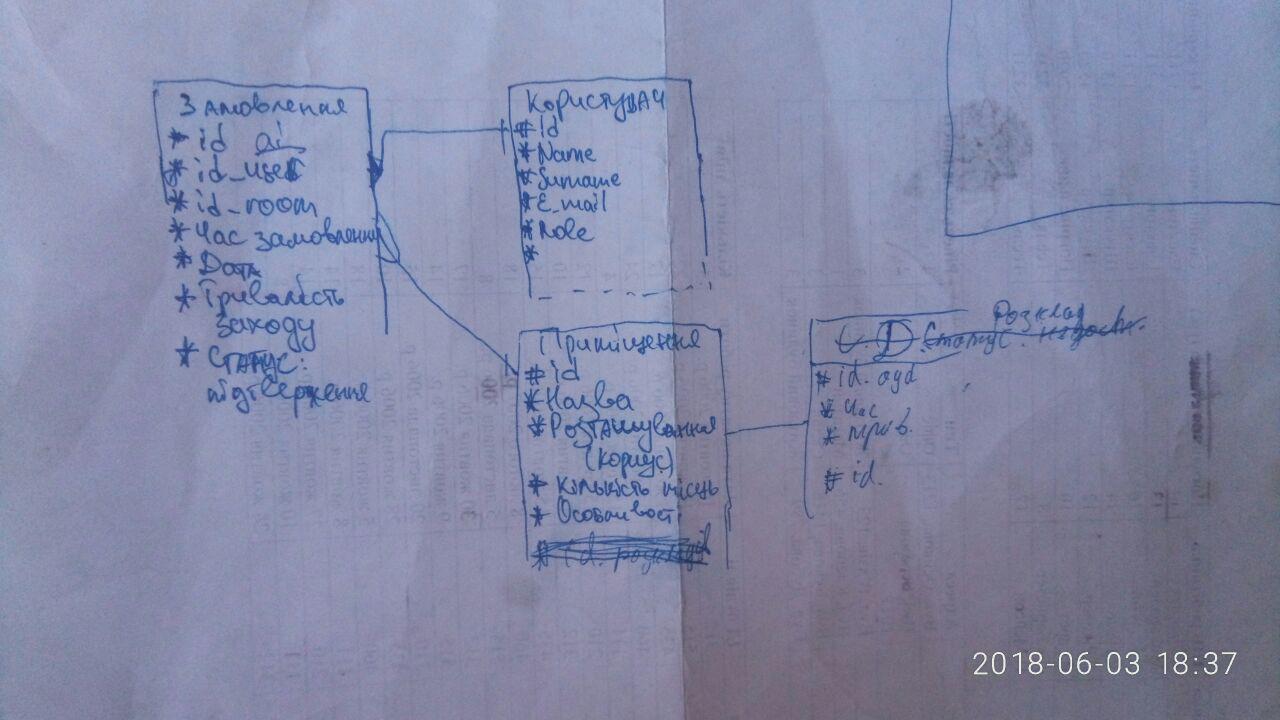 Замовлення
* id ai
* id_user
* id_room
* Час замовлення
* Дата
* Тривалість
заходу
* Статус:
підтверження
Користувач
# Id
* Name
* Surname
* E_mail
* Role
*
Приміщення
# id
* Назва
* Розташування
(корпус)
* Кількість місць
* Особливост.
# id. розкладу
Розклад
Статус
# id. ауд
* Час
* трив.
# id.
2018-06-03 18:37